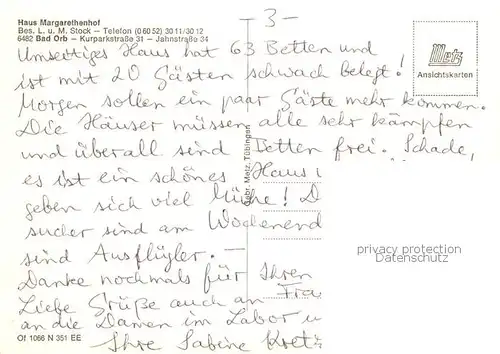 Haus Margarethenhof
Bes. L. u. M. Stock – Telefon (0 60 52) 30 11/30 12
6482 Bad Orb – Kurparkstraße 31 – Jahnstraße 34
– 3 –
Metz
Ansichtskarten
Umseitiges Haus hat 63 Betten und
ist mit 20 Gästen schwach belegt!
Morgen sollen ein paar Gäste mehr kommen.
Die Häuser müssen alle sehr kämpfen
und überall sind Betten frei. Schade,
es ist ein schönes Haus
geben sich viel Mühe! D
sucher sind am Wochenend
sind Ausflügler. –
Danke nochmals für Ihren
Liebe Grüße auch an Frau
an die Damen im Labor u
Ihre Sabine Kretz
Gebr. Metz, Tübingen
Of 1066 N 351 EE
privacy protection
Datenschutz